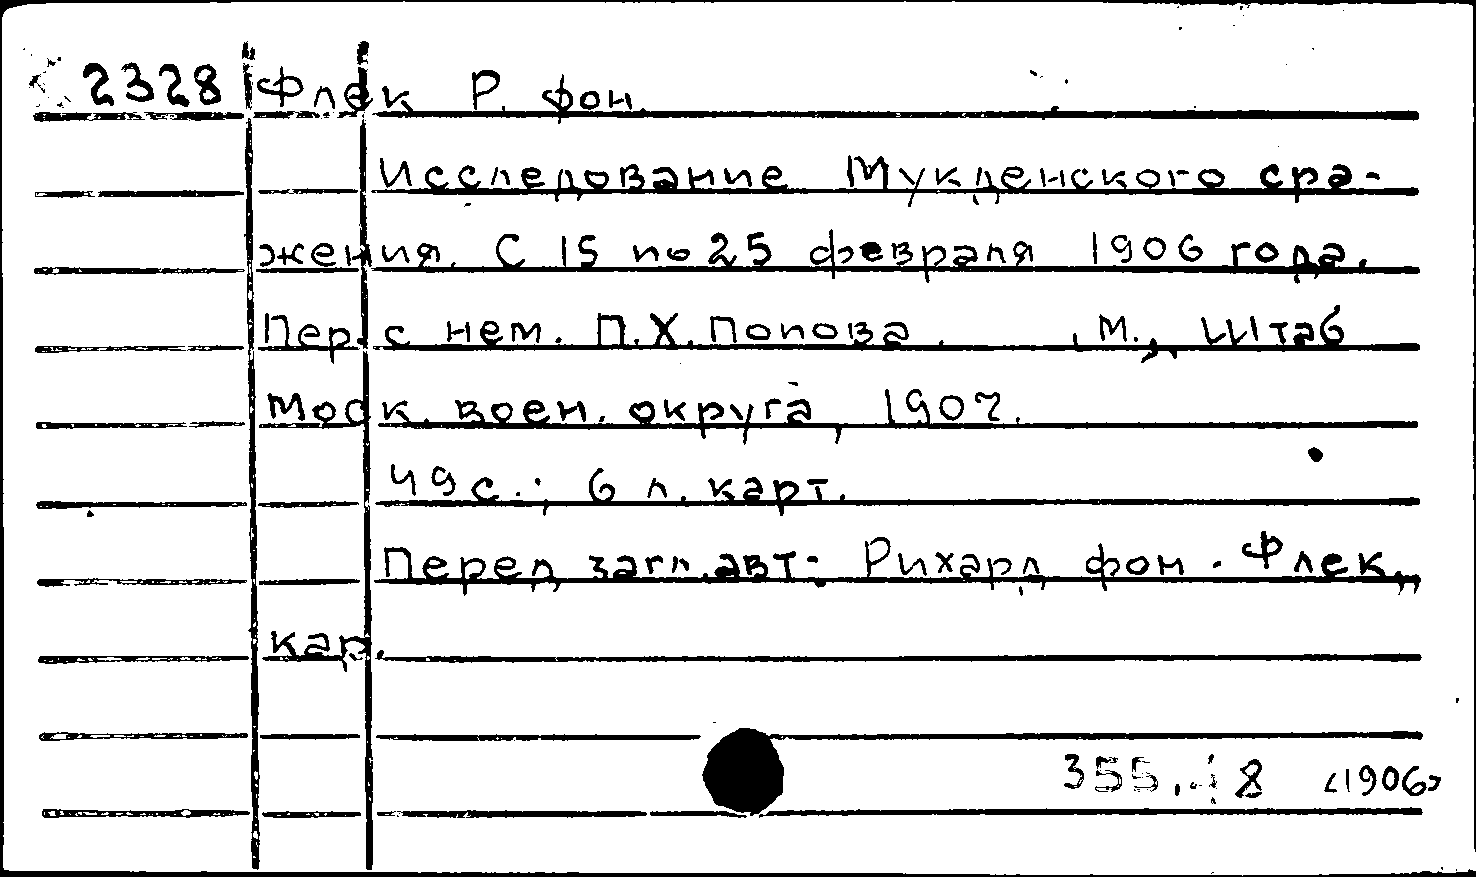 2328 Флек Р. фон.
Исследование Мукденского сра-
жения. С 15 по 25 февраля 1906 года.
Пер. с нем. П.Х. Попова. М., Штаб
Моск. воен. округа, 1907.
49 с.; 6 л. карт.
Перед загл. авт: Рихард фон. Флек,
кар.
355.48 <1906>